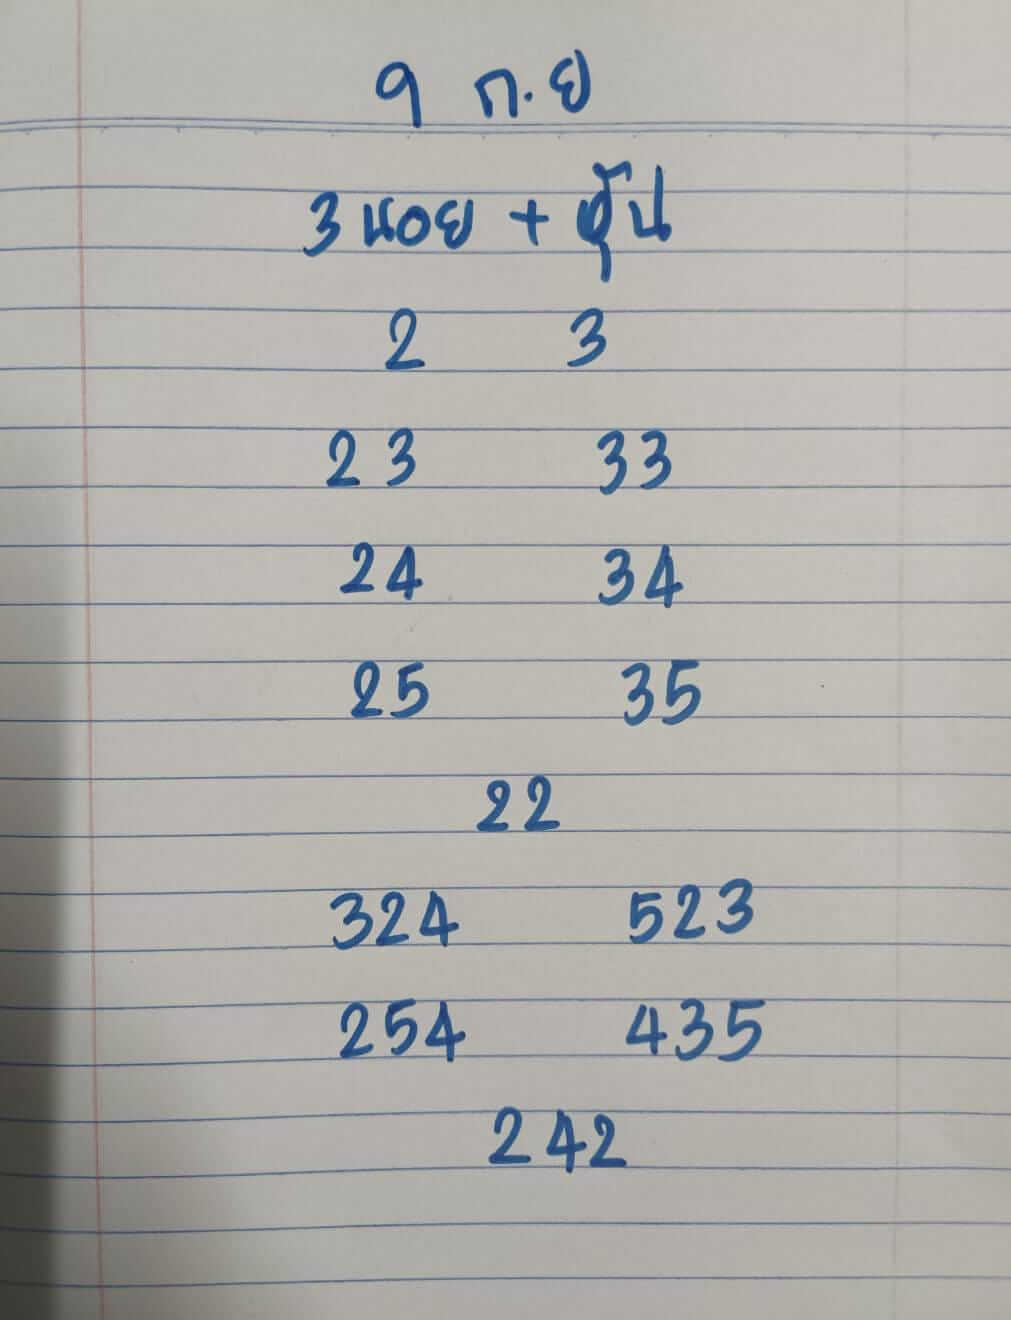 9 ก.ย
3 นอย + หุ้น
2 3
23 33
24 34
25 35
22
324 523
254 435
242